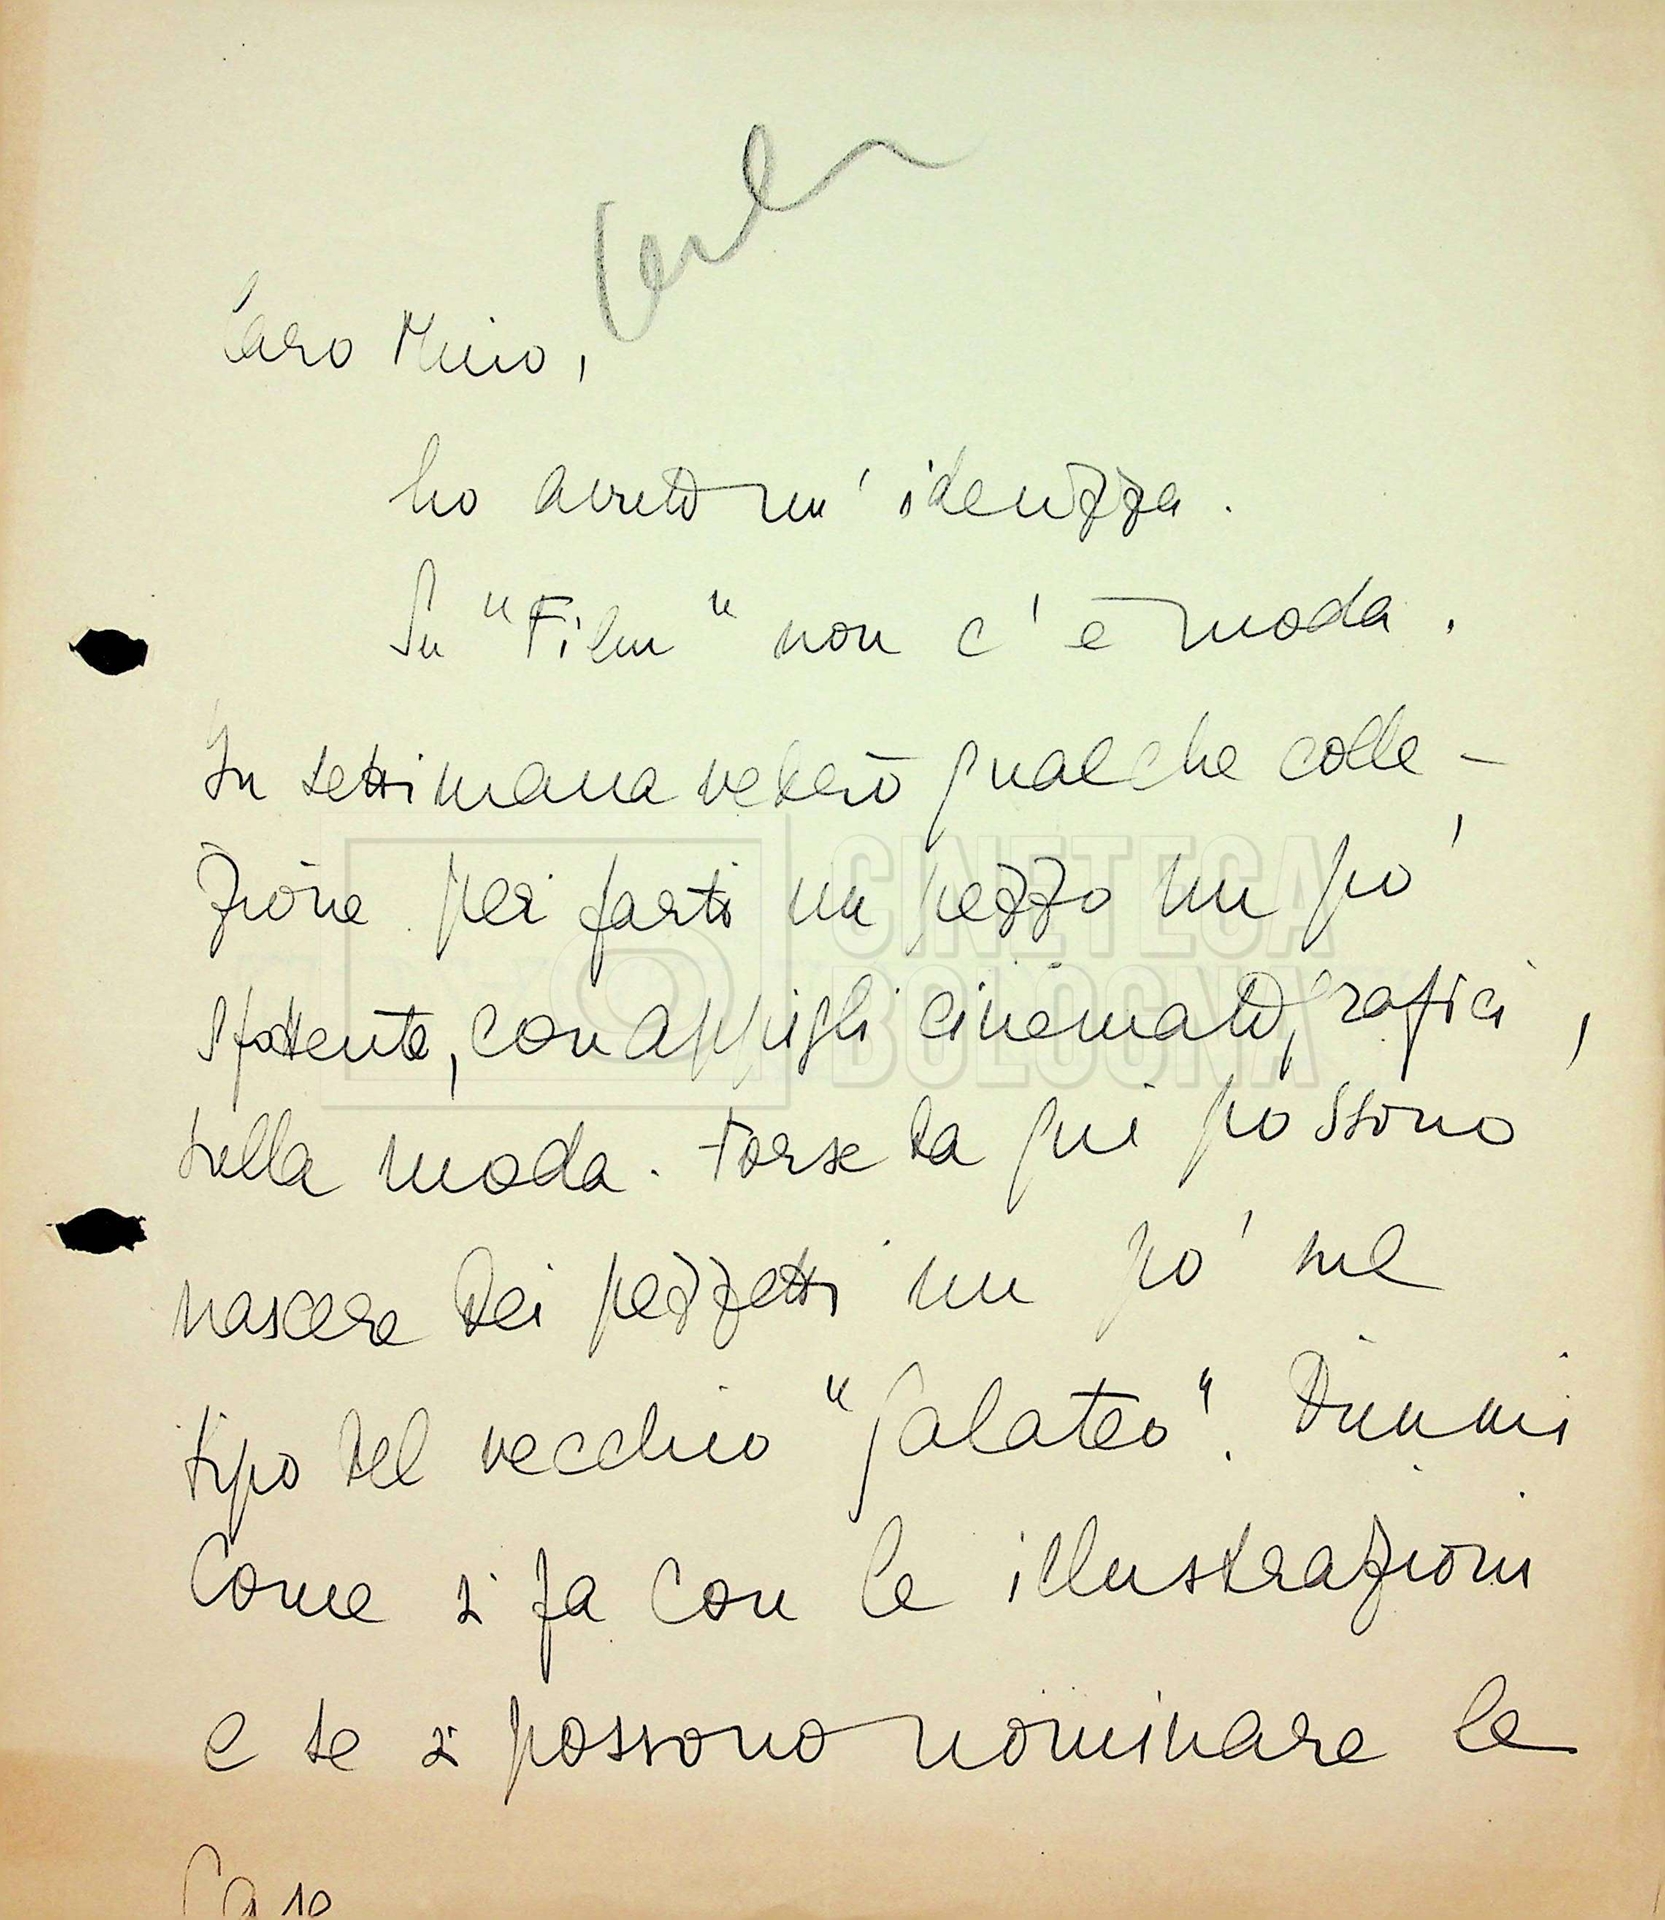 Caro Mino,
ho avuto un' ideuzza.
Su "Film" non c'è moda.
In settimana vedrò qualche colle-
zione per farti un pezzo un po'
sfottente, con appigli cinematografici,
sulla moda. Forse da qui possono
nascere dei pezzetti un po' sul
tipo del vecchio "Galateo". Dimmi
come si fa con le illustrazioni
e se si possono nominare le
case
CINETECA
BOLOGNA